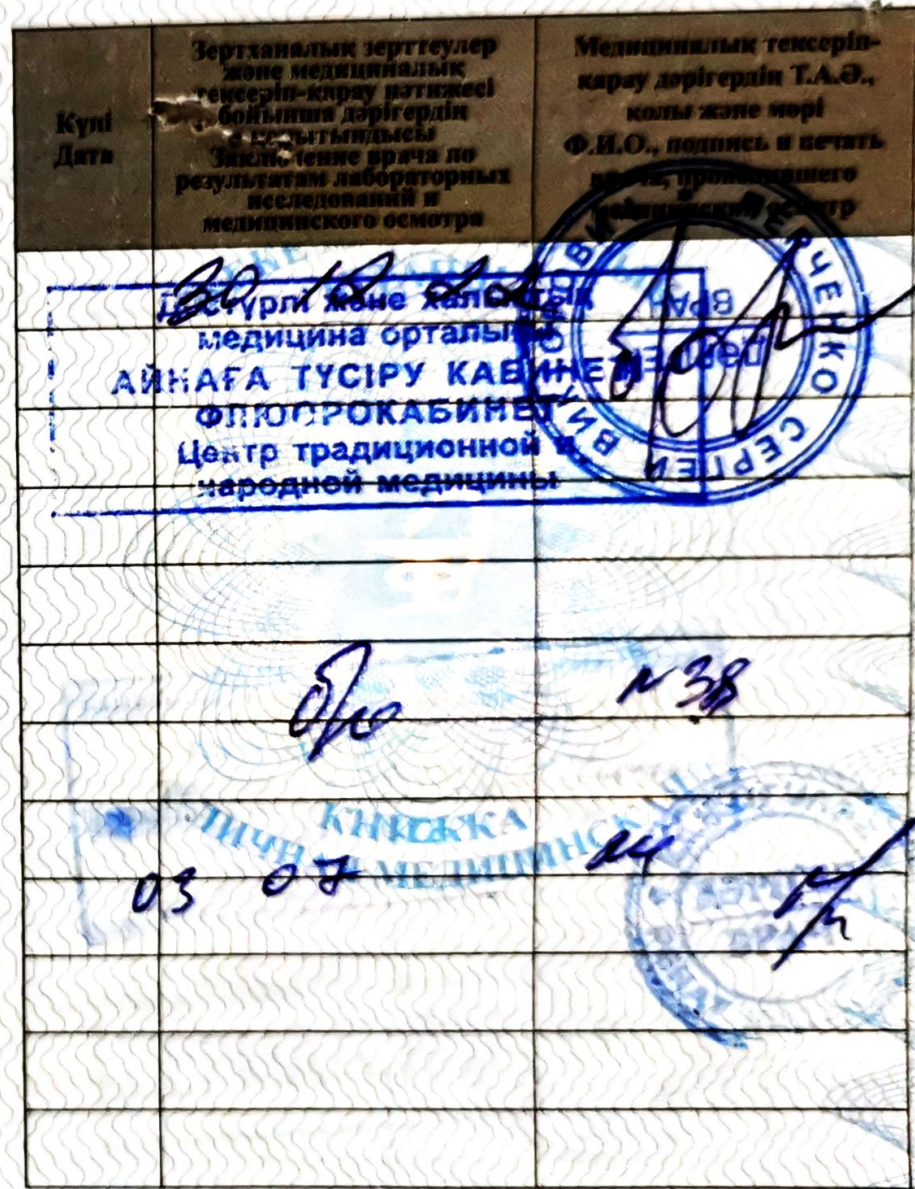 Күні
Дата
Зертханалық зерттеулер
және медициналық
тексеріп-қарау нәтижесі
бойынша дәрігердің
қорытындысы
Заключение врача по
результатам лабораторных
исследований и
медицинского осмотра
Медициналық тексеріп-
қарау дәрігердің Т.А.Ә.,
қолы және мөрі
Ф.И.О., подпись и печать
врача, проводившего
медицинский осмотр
30
Дәстүрлі және халықтық
медицина орталығы
АЙНАҒА ТҮСІРУ КАБИНЕТІ
ФЛЮОРОКАБИНЕТ
Центр традиционной и
народной медицины
СЕРГЕЙ
ВРАЧ
ДӘРІГЕР
N 38
КНИЖКА
ЛИЧНАЯ МЕДИЦИНСКАЯ
03 07
ДӘРІГЕР
ВРАЧ